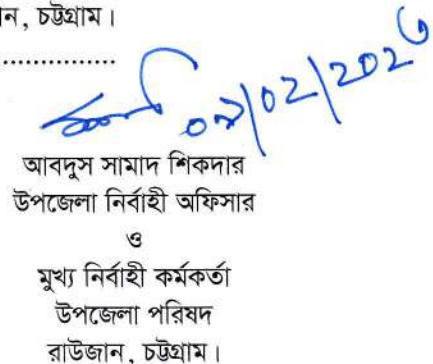 ন, চট্টগ্রাম।
................
০৯/০২/২০২৩
আবদুস সামাদ শিকদার
উপজেলা নির্বাহী অফিসার
ও
মুখ্য নির্বাহী কর্মকর্তা
উপজেলা পরিষদ
রাউজান, চট্টগ্রাম।